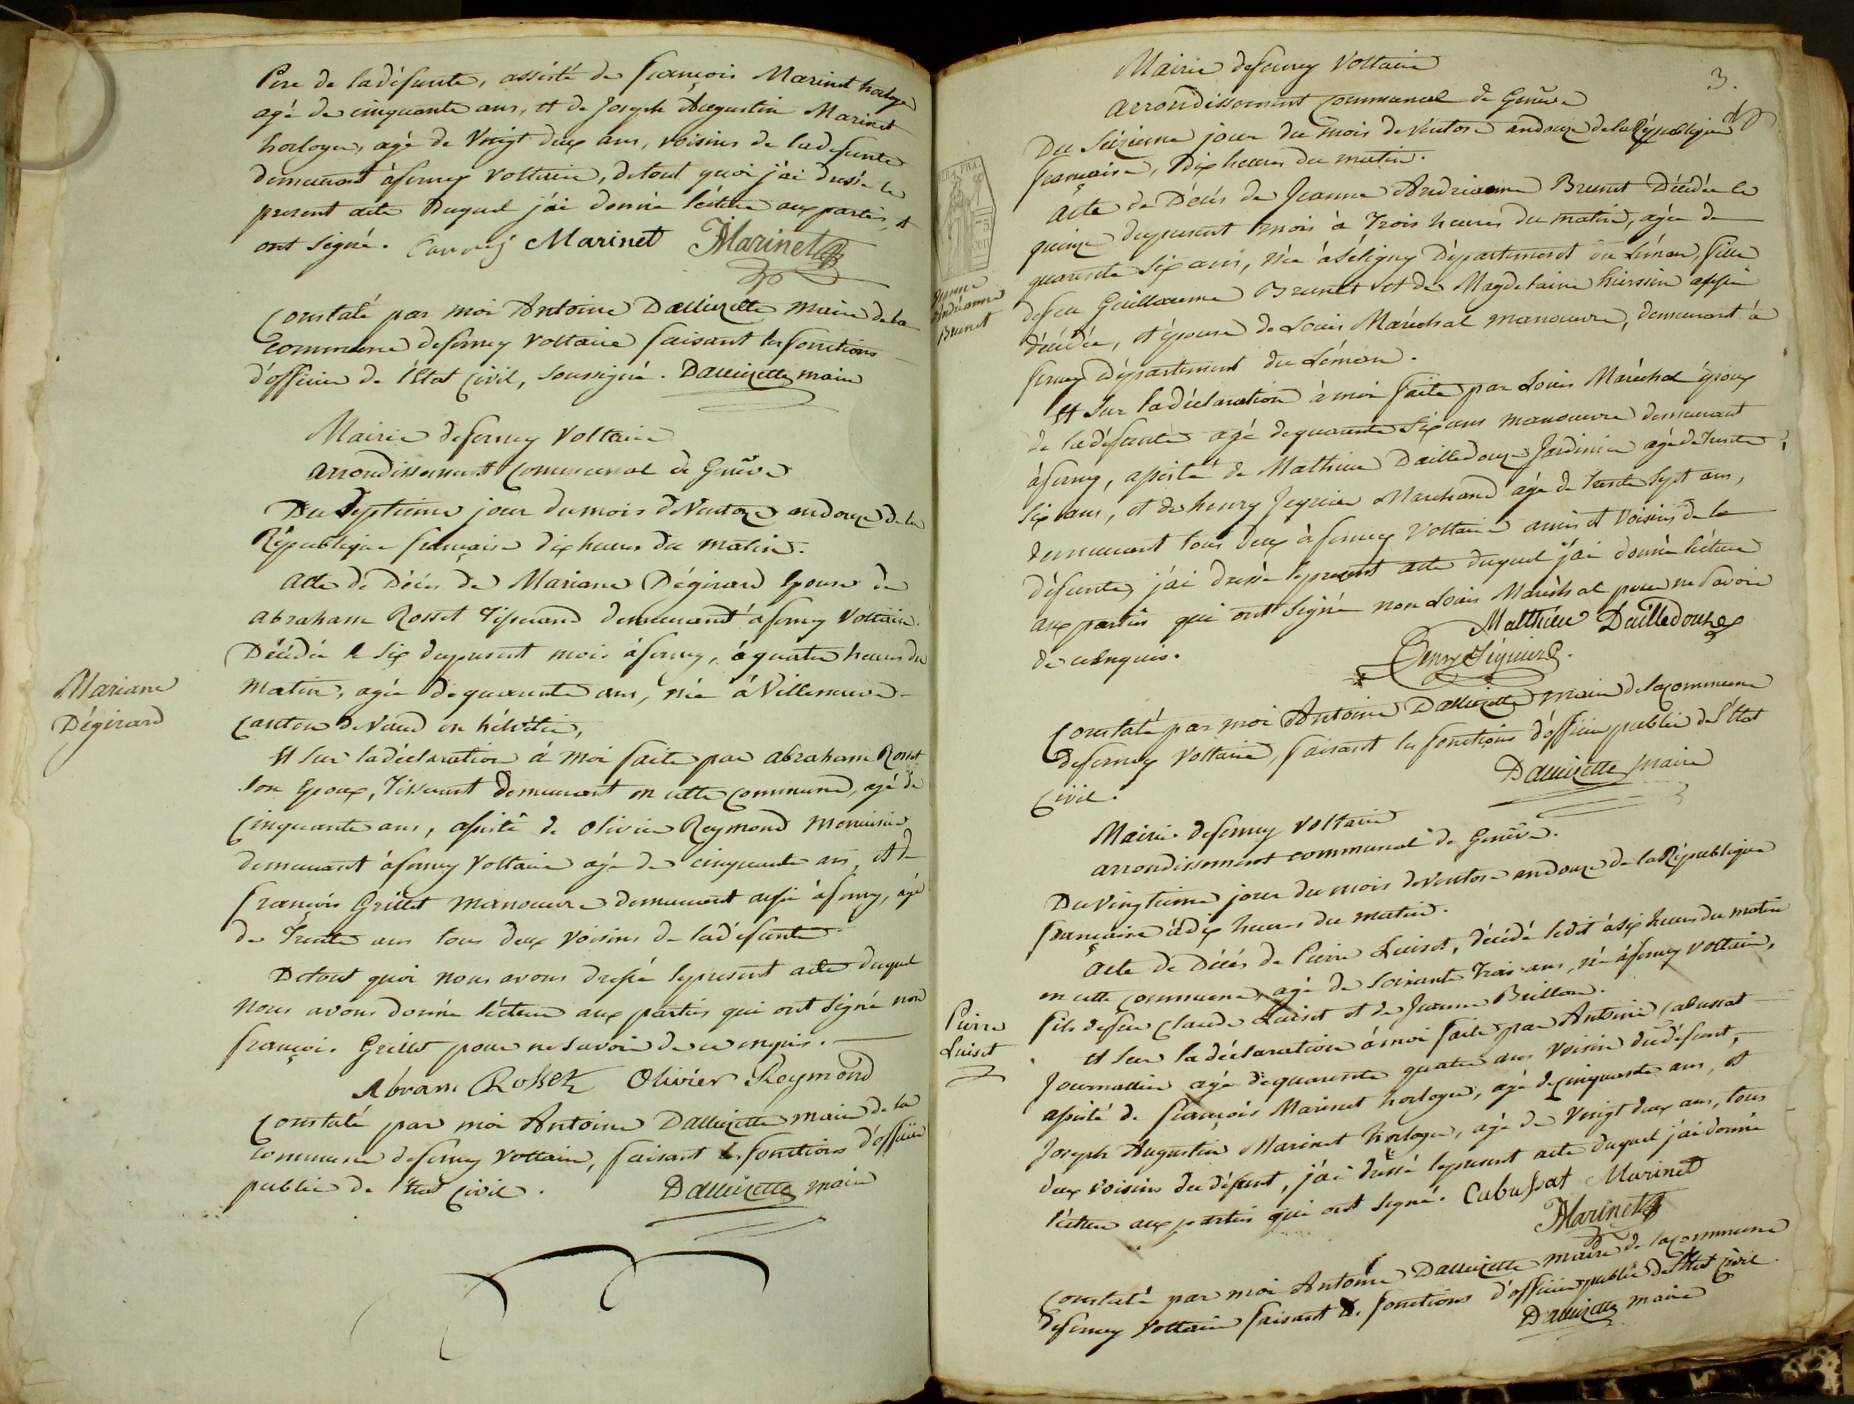 Père de la défunte, assisté de françois Marinet horloger
agé de cinquante ans, et de Joseph Augustin Marinet
horloger, agé de Vingt deux ans, voisins de la defunte
demeurant à ferney Voltaire, de tout quoi j'ai dressé le
present acte duquel j'ai donné lécture aux parties, et
ont signé. Marinet JMarinet
Constaté par moi Antoine Dallizette Maire de la
Commune de ferney Voltaire faisant les fonctions
d'officier de l'État Civil, soussigné. Dallizette maire
Mairie de ferney Voltaire
arrondissement Communal de Genève
Du Septieme jour du mois de Ventose an douze de la
République française dix heures du matin.
Acte de Décès de Mariane Dégirard Epouse de
abraham Rosset Tisserand demeurant à ferney Voltaire.
Décédée le six du present mois à ferney, à quatre heures du
Matin, agée de quarente ans, née à Villeneuve
Canton de Vaud en hélvétie,
Mariane
Dégirard
Et sur la déclaration à moi faite par abraham Rosset
son Epoux, Tisserant demeurant en cette Commune, agé de
Cinquante ans, assisté de Olivier Reymond Menuisier
demeurant à ferney Voltaire agé de cinquante ans, et de
françois Grillet manoeuvre demeurant aussi à ferney, agé
de Trente ans tous deux voisins de la défunte
De tout quoi nous avons dressé le present acte duquel
nous avons donné lécture aux parties qui ont signé non
françois Grillet pour ne savoir de ce enquis.
Abram Rosset Olivier Reymond
Constaté par moi Antoine Dallizette maire de la
Commune de ferney Voltaire, faisant les fonctions d'officier
public de l'État Civil. Dallizette maire
3.
Mairie de ferney Voltaire
arrondissement Communal de Genève
Du Seizieme jour du mois de Ventose an douze de la République
française, Dix heures du matin.
Acte de Décès de Jeanne Andrianne Brunet Décédée le
quinze du present mois à Trois heures du matin, agée de
quarente six ans, née à Séligny Département du Léman, fille
de feu Guillaume Brunet et de Magdelaine aussi
décédée, et épouse de Louis Maréchal manoeuvre, demeurant à
ferney département du Léman.
Jeanne
Andrianne
Brunet
Et sur la déclaration à moi faite par Louis Maréchal époux
de la défunte agé de quarente six ans manoeuvre demeurant
à ferney, assisté de Mathieu Dailledouze Jardinier agé de trente
six ans, et de henry Seguier Marchand agé de Trente Sept ans,
demeurant tous deux à ferney Voltaire amis et Voisins de la
défunte, j'ai dressé le present acte duquel j'ai donné lécture
aux parties qui ont signé non Louis Maréchal pour ne savoir
de ce enquis. Matthieu Dailledouze
Henry Séguier
Constaté par moi Antoine Dallizette maire de la commune
de ferney Voltaire, faisant les fonctions d'officier public de l'État
Civil. Dallizette maire
Mairie de ferney Voltaire
arrondissement communal de Genève.
Du vingtieme jour du mois de Ventose an douze de la République
française à dix heures du matin.
Acte de Décès de Pierre Luiset, décédé ledit à six heures du matin
en cette Commune, agé de soixante Trois ans, né à ferney Voltaire,
fils de feu Claude Luiset et de Jeanne Brillon.
Pierre
Luiset
Et sur la déclaration à moi faite par Antoine Cabussat
Journallier agé de quarente quatre ans voisin du défunt,
assisté de françois Marinet horloger, agé de cinquante ans, et
Joseph Augustin Marinet horloger, agé de Vingt deux ans, tous
deux voisins du défunt, j'ai dressé le present acte duquel j'ai donné
lécture aux parties qui ont signé. Cabussat Marinet
JMarinet
Constaté par moi Antoine Dallizette maire de la commune
de ferney Voltaire faisant les fonctions d'officier public de l'État Civil.
Dallizette maire